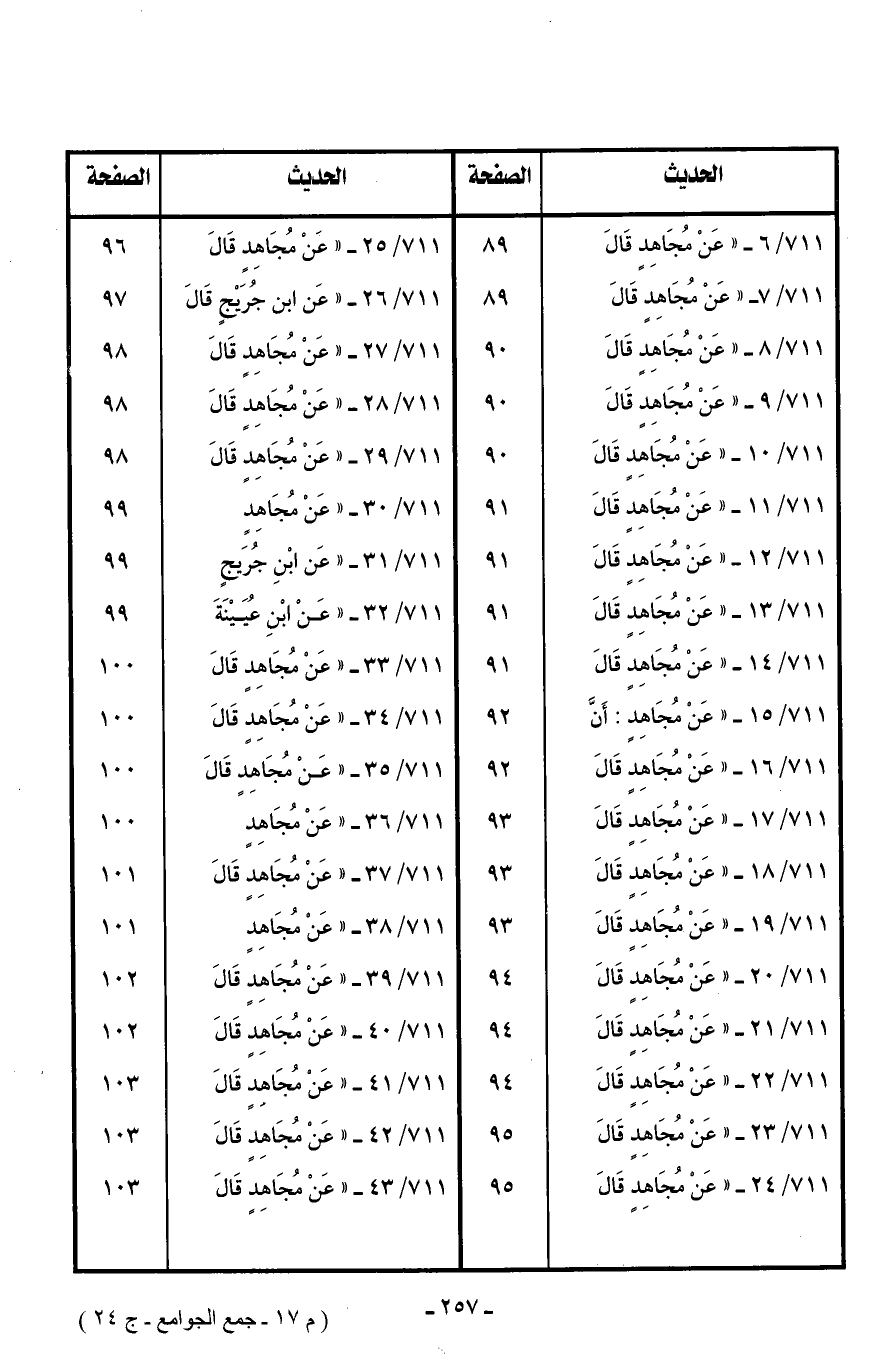 الحديث الصفحة الحديث الصفحة
٦/٧١١ ـ « عَنْ مُجَاهِدٍ قَالَ ٨٩ ٢٥/٧١١ ـ « عَنْ مُجَاهِدٍ قَالَ ٩٦
٧/٧١١ـ « عَنْ مُجَاهِدٍ قَالَ ٨٩ ٢٦/٧١١ ـ « عَن ابن جُرَيْجٍ قَالَ ٩٧
٨/٧١١ ـ « عَنْ مُجَاهِدٍ قَالَ ٩٠ ٢٧/٧١١ ـ « عَنْ مُجَاهِدٍ قَالَ ٩٨
٩/٧١١ ـ « عَنْ مُجَاهِدٍ قَالَ ٩٠ ٢٨/٧١١ ـ « عَنْ مُجَاهِدٍ قَالَ ٩٨
١٠/٧١١ ـ « عَنْ مُجَاهِدٍ قَالَ ٩٠ ٢٩/٧١١ ـ « عَنْ مُجَاهِدٍ قَالَ ٩٨
١١/٧١١ ـ « عَنْ مُجَاهِدٍ قَالَ ٩١ ٣٠/٧١١ ـ « عَنْ مُجَاهِدٍ ٩٩
١٢/٧١١ ـ « عَنْ مُجَاهِدٍ قَالَ ٩١ ٣١/٧١١ ـ « عَن ابْنِ جُرَيجٍ ٩٩
١٣/٧١١ ـ « عَنْ مُجَاهِدٍ قَالَ ٩١ ٣٢/٧١١ ـ « عَـنْ ابْنِ عُيَـيْنَةَ ٩٩
١٤/٧١١ ـ « عَنْ مُجَاهِدٍ قَالَ ٩١ ٣٣/٧١١ ـ « عَنْ مُجَاهِدٍ قَالَ ١٠٠
١٥/٧١١ ـ « عَنْ مُجَاهِدٍ : أَنَّ ٩٢ ٣٤/٧١١ ـ « عَنْ مُجَاهِدٍ قَالَ ١٠٠
١٦/٧١١ ـ « عَنْ مُجَاهِدٍ قَالَ ٩٢ ٣٥/٧١١ ـ « عَـنْ مُجَاهِدٍ قَالَ ١٠٠
١٧/٧١١ ـ « عَنْ مُجَاهِدٍ قَالَ ٩٣ ٣٦/٧١١ ـ « عَنْ مُجَاهِدٍ ١٠٠
١٨/٧١١ ـ « عَنْ مُجَاهِدٍ قَالَ ٩٣ ٣٧/٧١١ ـ « عَنْ مُجَاهِدٍ قَالَ ١٠١
١٩/٧١١ ـ « عَنْ مُجَاهِدٍ قَالَ ٩٣ ٣٨/٧١١ ـ « عَنْ مُجَاهِدٍ ١٠١
٢٠/٧١١ ـ « عَنْ مُجَاهِدٍ قَالَ ٩٤ ٣٩/٧١١ ـ « عَنْ مُجَاهِدٍ قَالَ ١٠٢
٢١/٧١١ ـ « عَنْ مُجَاهِدٍ قَالَ ٩٤ ٤٠/٧١١ ـ « عَنْ مُجَاهِدٍ قَالَ ١٠٢
٢٢/٧١١ ـ « عَنْ مُجَاهِدٍ قَالَ ٩٤ ٤١/٧١١ ـ « عَنْ مُجَاهِدٍ قَالَ ١٠٣
٢٣/٧١١ ـ « عَنْ مُجَاهِدٍ قَالَ ٩٥ ٤٢/٧١١ ـ « عَنْ مُجَاهِدٍ قَالَ ١٠٣
٢٤/٧١١ ـ « عَنْ مُجَاهِدٍ قَالَ ٩٥ ٤٣/٧١١ ـ « عَنْ مُجَاهِدٍ قَالَ ١٠٣
ـ ٢٥٧ ـ
( م ١٧ ـ جمع الجوامع ـ ج ٢٤ )